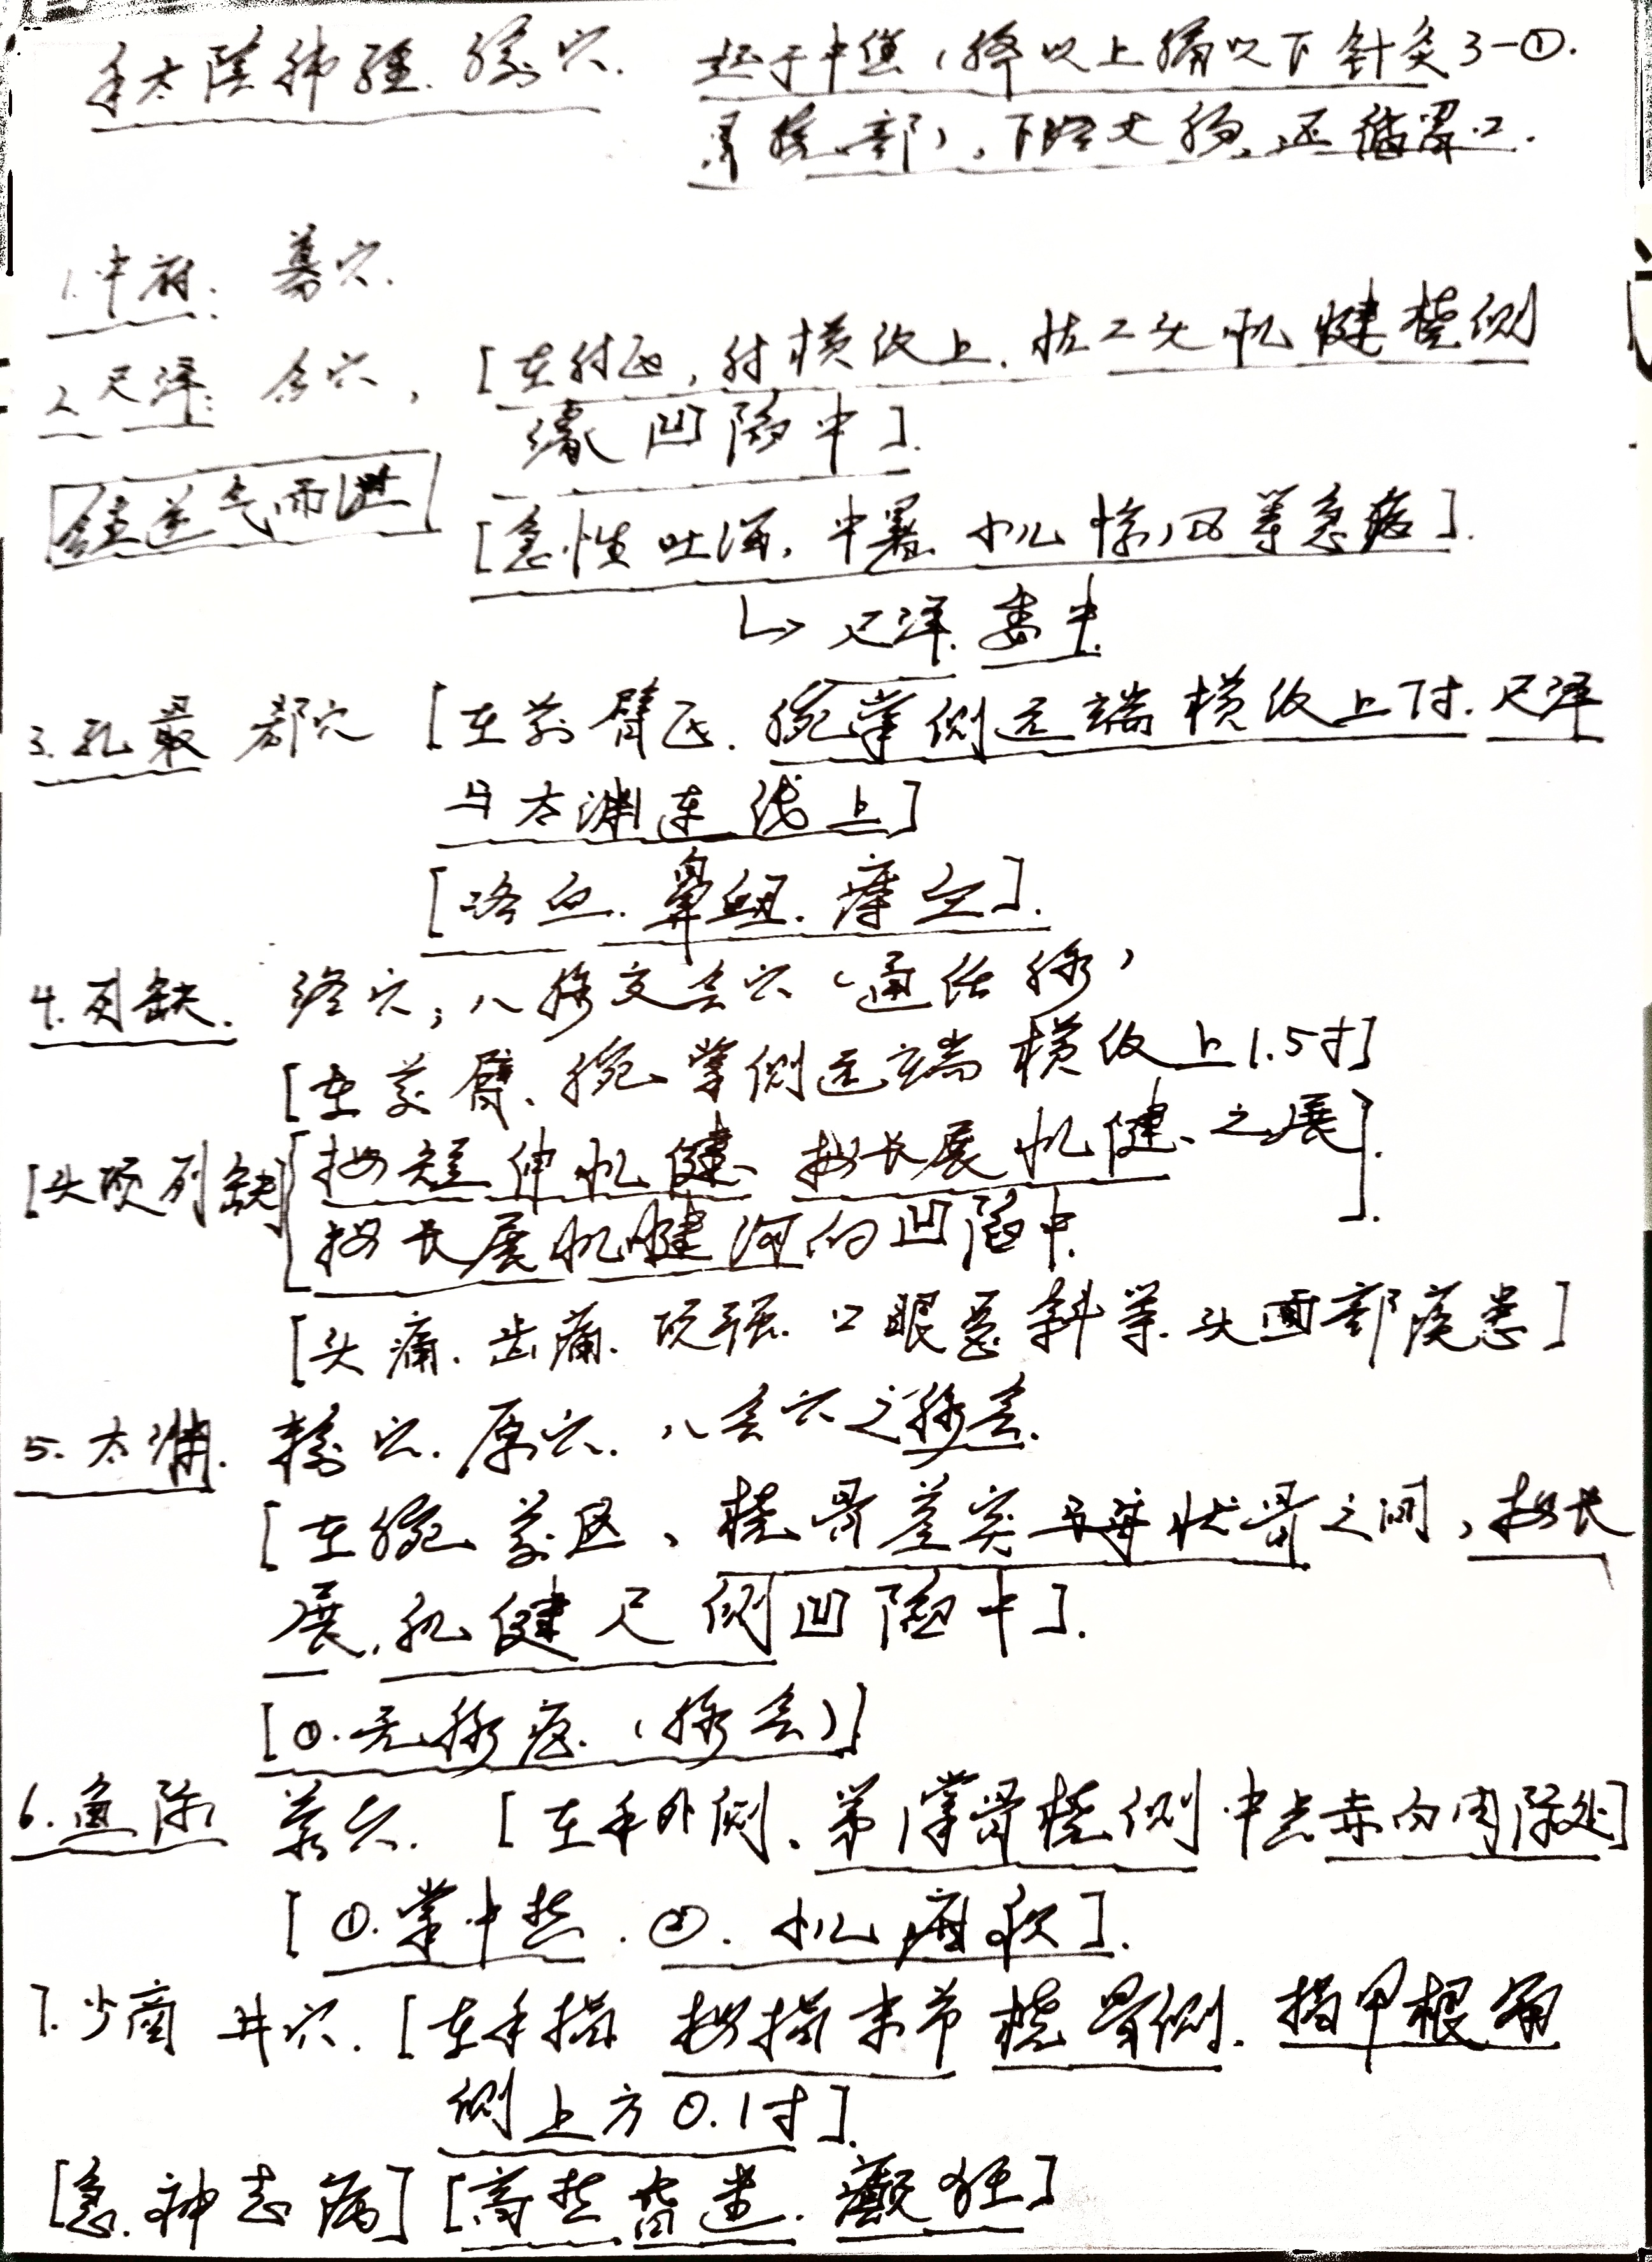 手太阴肺经.腧穴. 起于中焦(脐以上膈以下 针灸3-①.
胃脘部),下络大肠,还循胃口.
1.中府. 募穴.
2.尺泽. 合穴, [在肘区,肘横纹上.肱二头肌腱桡侧
缘凹陷中].
合主逆气而泄
[急性吐泻,中暑 小儿惊风等急症].
↳尺泽.委中.
3.孔最 郄穴 [在前臂区.腕掌侧远端横纹上7寸.尺泽
与太渊连线上]
[咯血.鼻衄.痔血].
4.列缺. 络穴;八脉交会穴(通任脉)
[在前臂、腕掌侧远端横纹上1.5寸]
[头项列缺] [拇短伸肌腱、拇长展肌腱之展
拇长展肌腱沟的凹陷中.].
[头痛.齿痛.项强.口眼歪斜等.头面部疾患]
5.太渊. 输穴.原穴.八会穴之脉会.
[在腕前区、桡骨茎突与舟状骨之间,拇长
展,肌腱尺侧凹陷中].
[①.无脉症.(脉会)]
6.鱼际 荥穴. [在手外侧、第1掌骨桡侧中点赤白肉际处]
[①.掌中热.②.小儿疳积].
7.少商 井穴.[在手指 拇指末节桡骨侧.指甲根角
侧上方0.1寸].
[急.神志病][高热昏迷.癫狂]